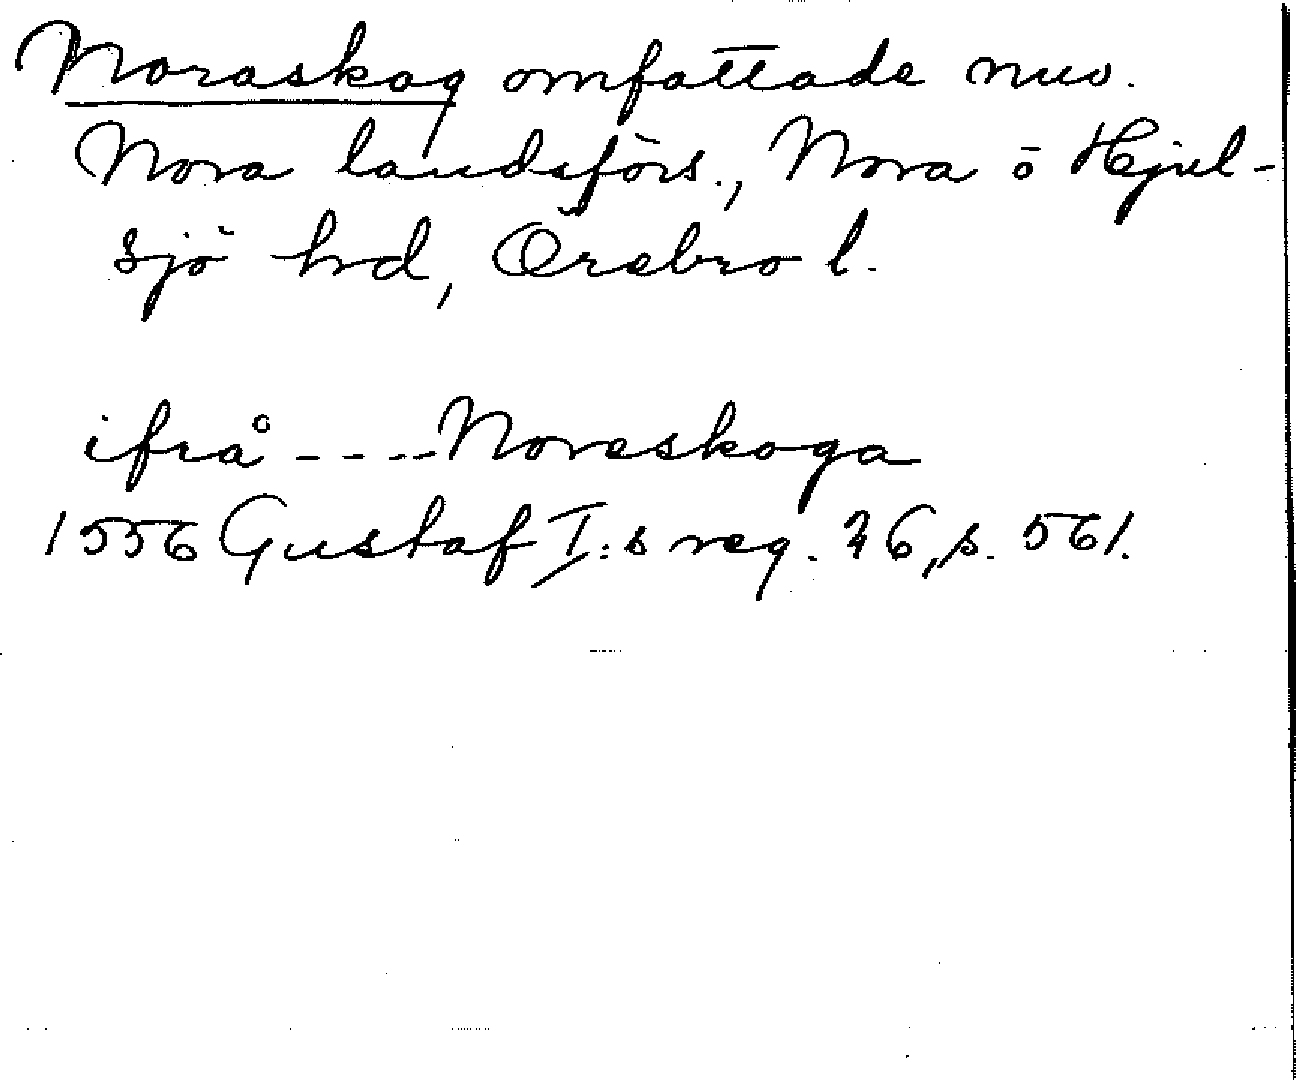 Noraskog omfattade nuv.
Nora landsförs., Nora o Hjul-
sjö hrd, Örebro l.
ifrå ---- Noreskoga
1556 Gustaf I:s reg. 26, s. 561.